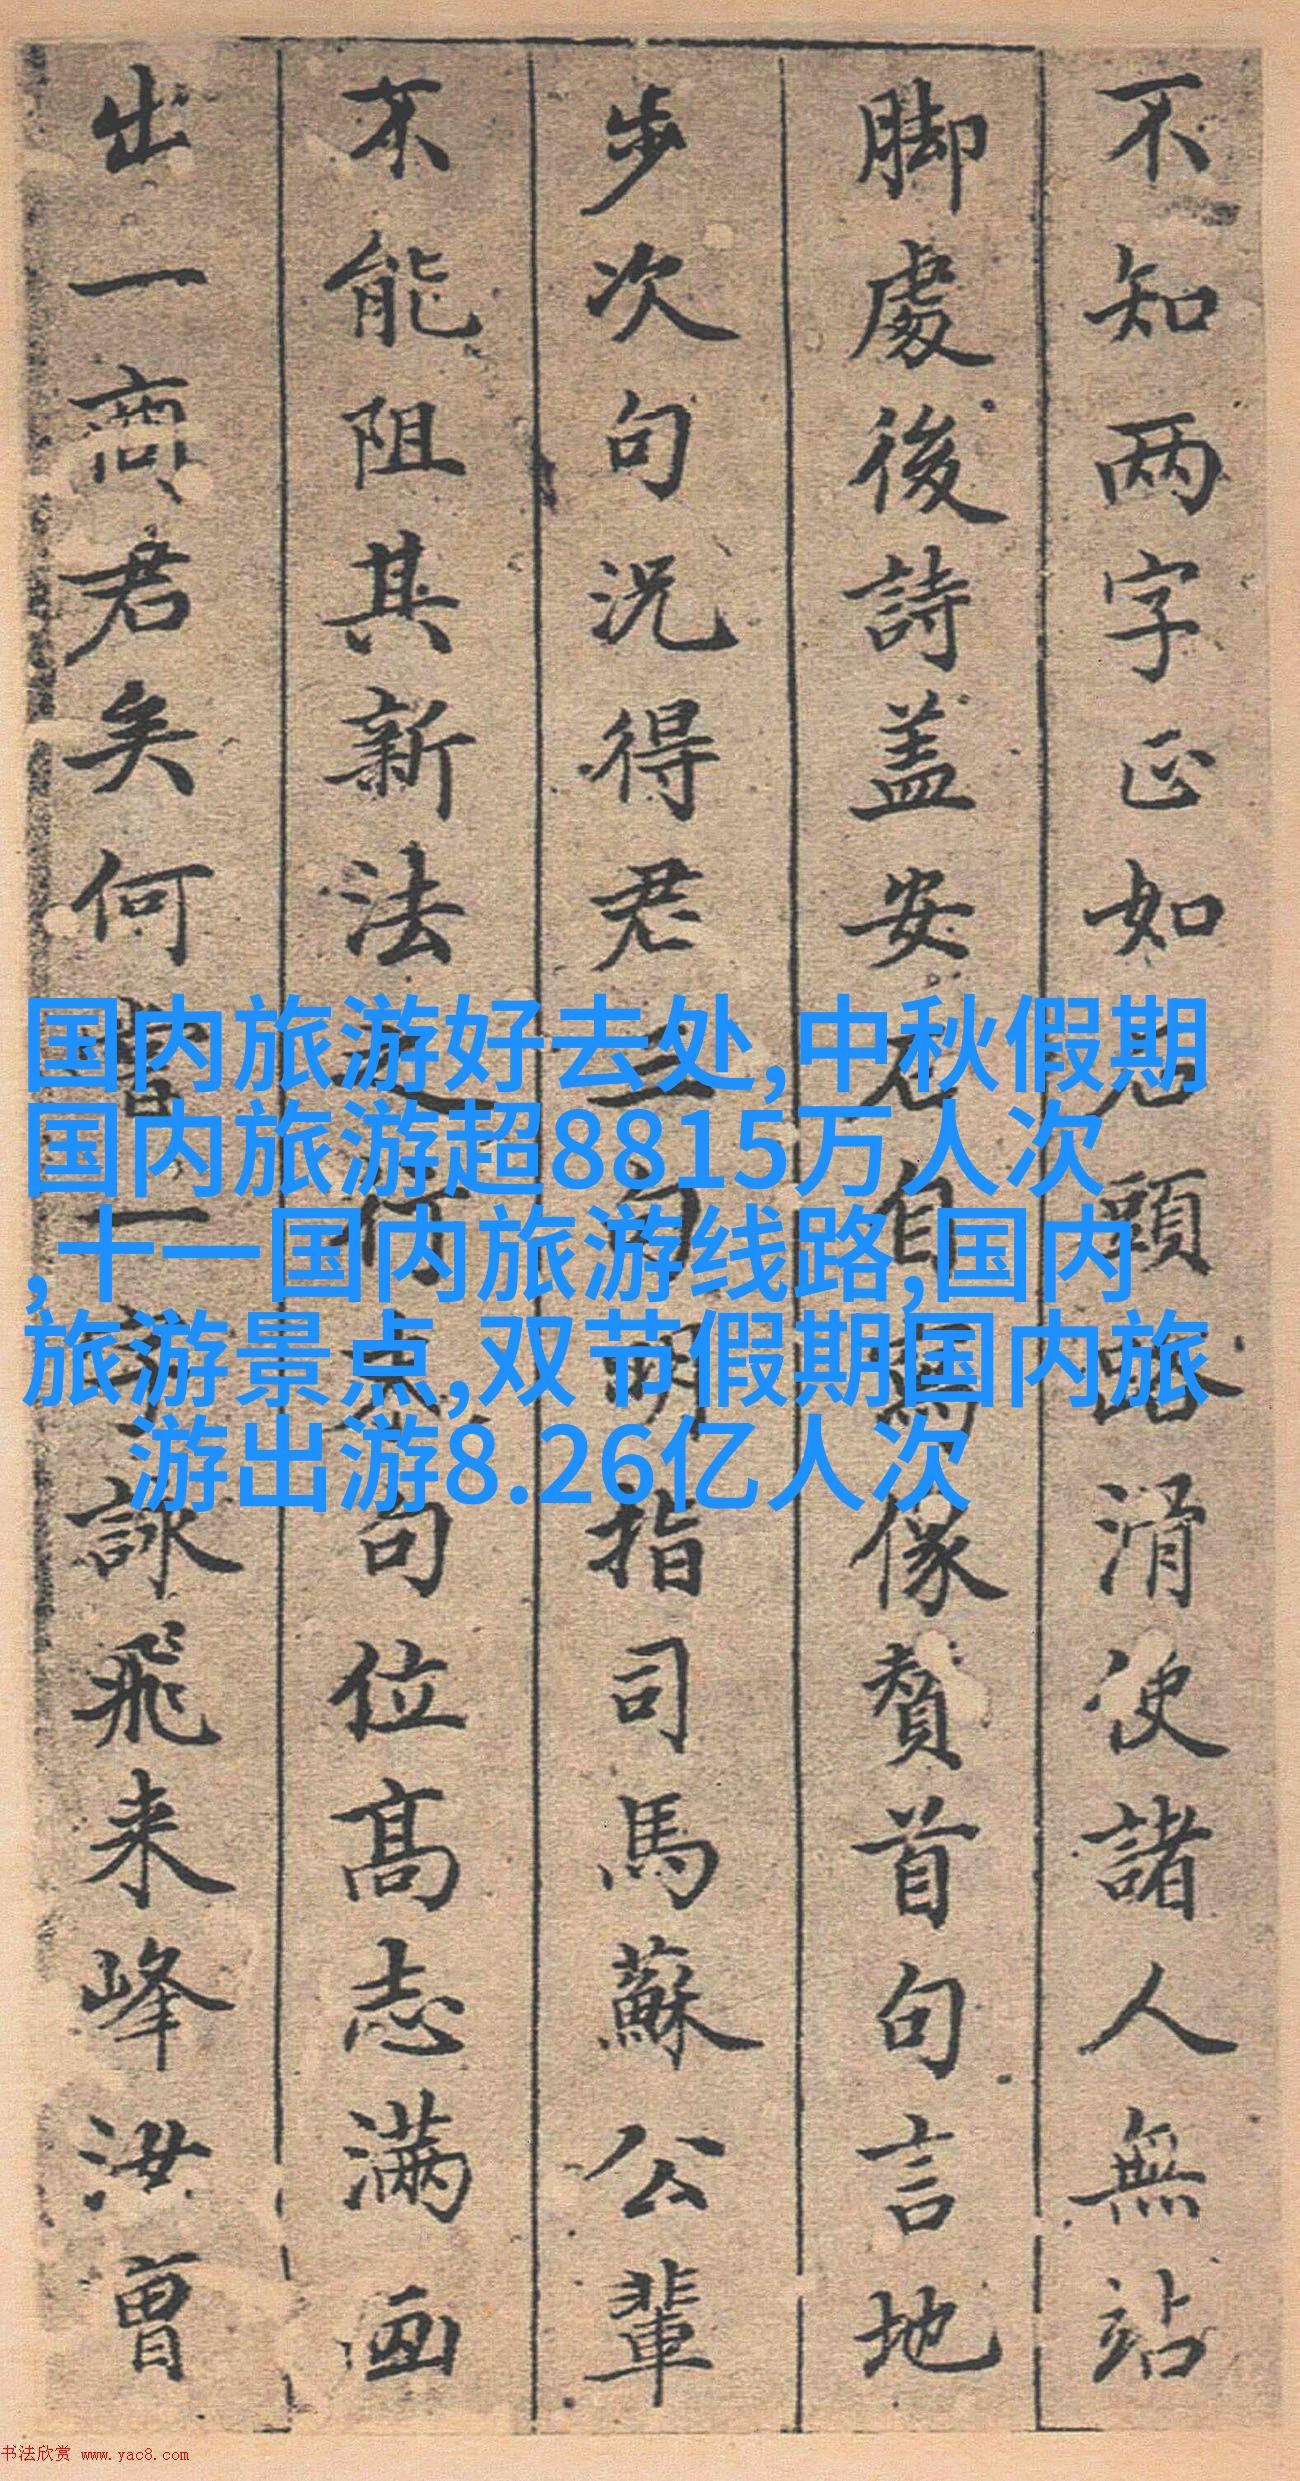 不知两字正如君頭路滑使諸人無站
脚處後詩蓋安石自寫像賛首句言地
步次句况得君三句明指司馬蘇公輩
不能阻其新法之行末句位高志满画
出一商君矣何嘗一字詠飛来峰汝曾
国内旅游好去处,中秋假期
国内旅游超8815万人次
,十一国内旅游线路,国内
旅游景点,双节假期国内旅
游出游8.26亿人次
书法欣赏 www.yac8.com